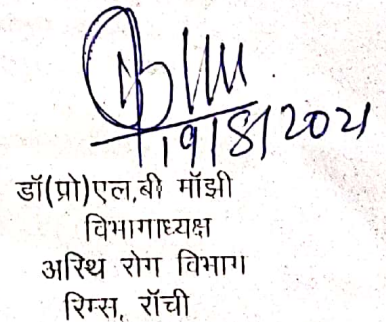 19/8/2021
डॉ(प्रो)एल.बी मॉंझी
विभागाध्यक्ष
अस्थि रोग विभाग
रिम्स, रॉंची